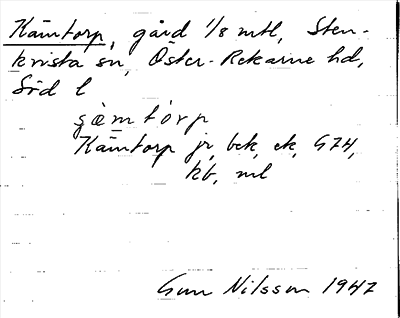 Kämtorp, gård 1/8 mtl, Sten-
kvista sn, Öster-Rekarne hd,
Söd l
çæ̀mtórp
Kämtorp jr, bck, ek, GZH,
kb, ml
Gun Nilsson 1947